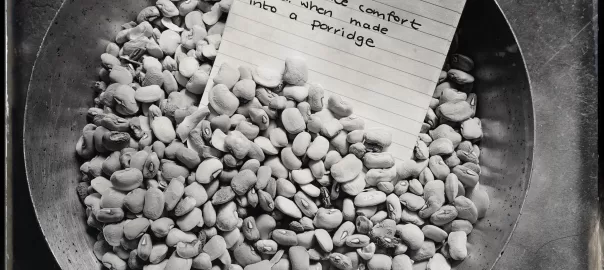 comfort
when made
into a porridge